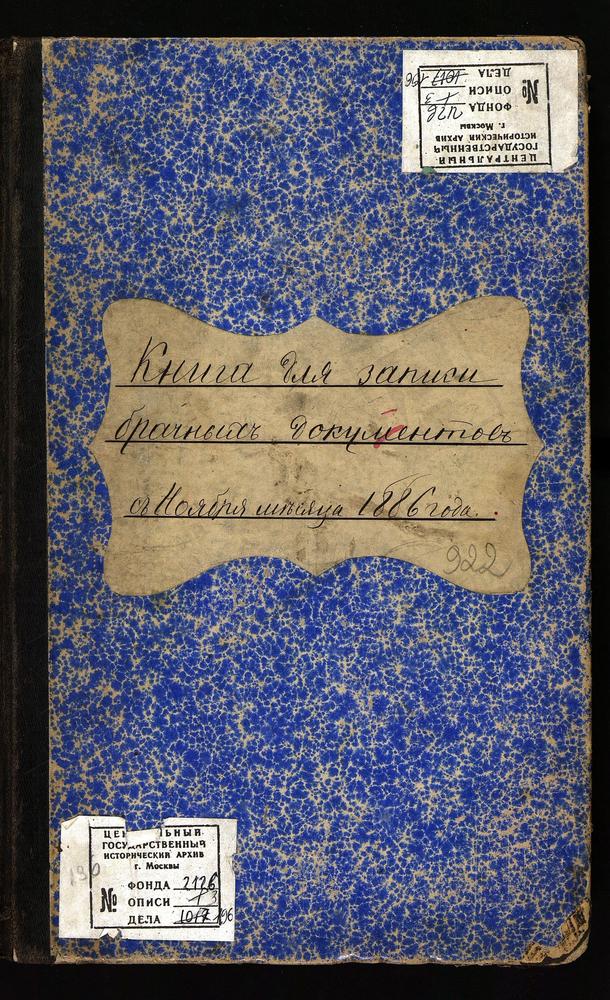 ЦЕНТРАЛЬНЫЙ
ГОСУДАРСТВЕННЫЙ
ИСТОРИЧЕСКИЙ АРХИВ
г. Москвы
№
ФОНДА 2126
ОПИСИ 1 3
ДЕЛА 1017 196
Книга для записи
брачныхъ документовъ
съ Ноября мѣсяца 1886 года.
922
190
ЦЕ ЬНЫЙ
ГОСУДАРСТВЕННЫЙ
ИСТОРИЧЕСКИЙ АРХИВ
г. Москвы
№
ФОНДА 2126
ОПИСИ 1 3
ДЕЛА 1017 196